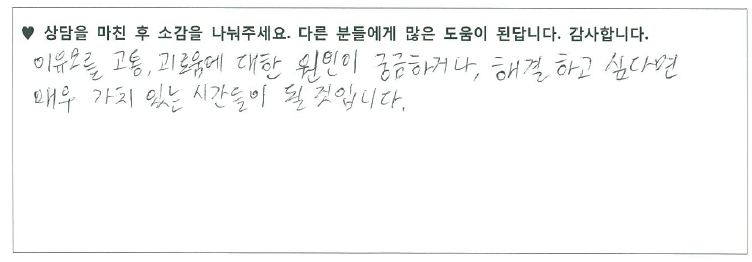 ♥ 상담을 마친 후 소감을 나눠주세요. 다른 분들에게 많은 도움이 된답니다. 감사합니다.
이유모를 고통, 괴로움에 대한 원인이 궁금하거나, 해결하고 싶다면
매우 가치 있는 시간들이 될 것입니다.